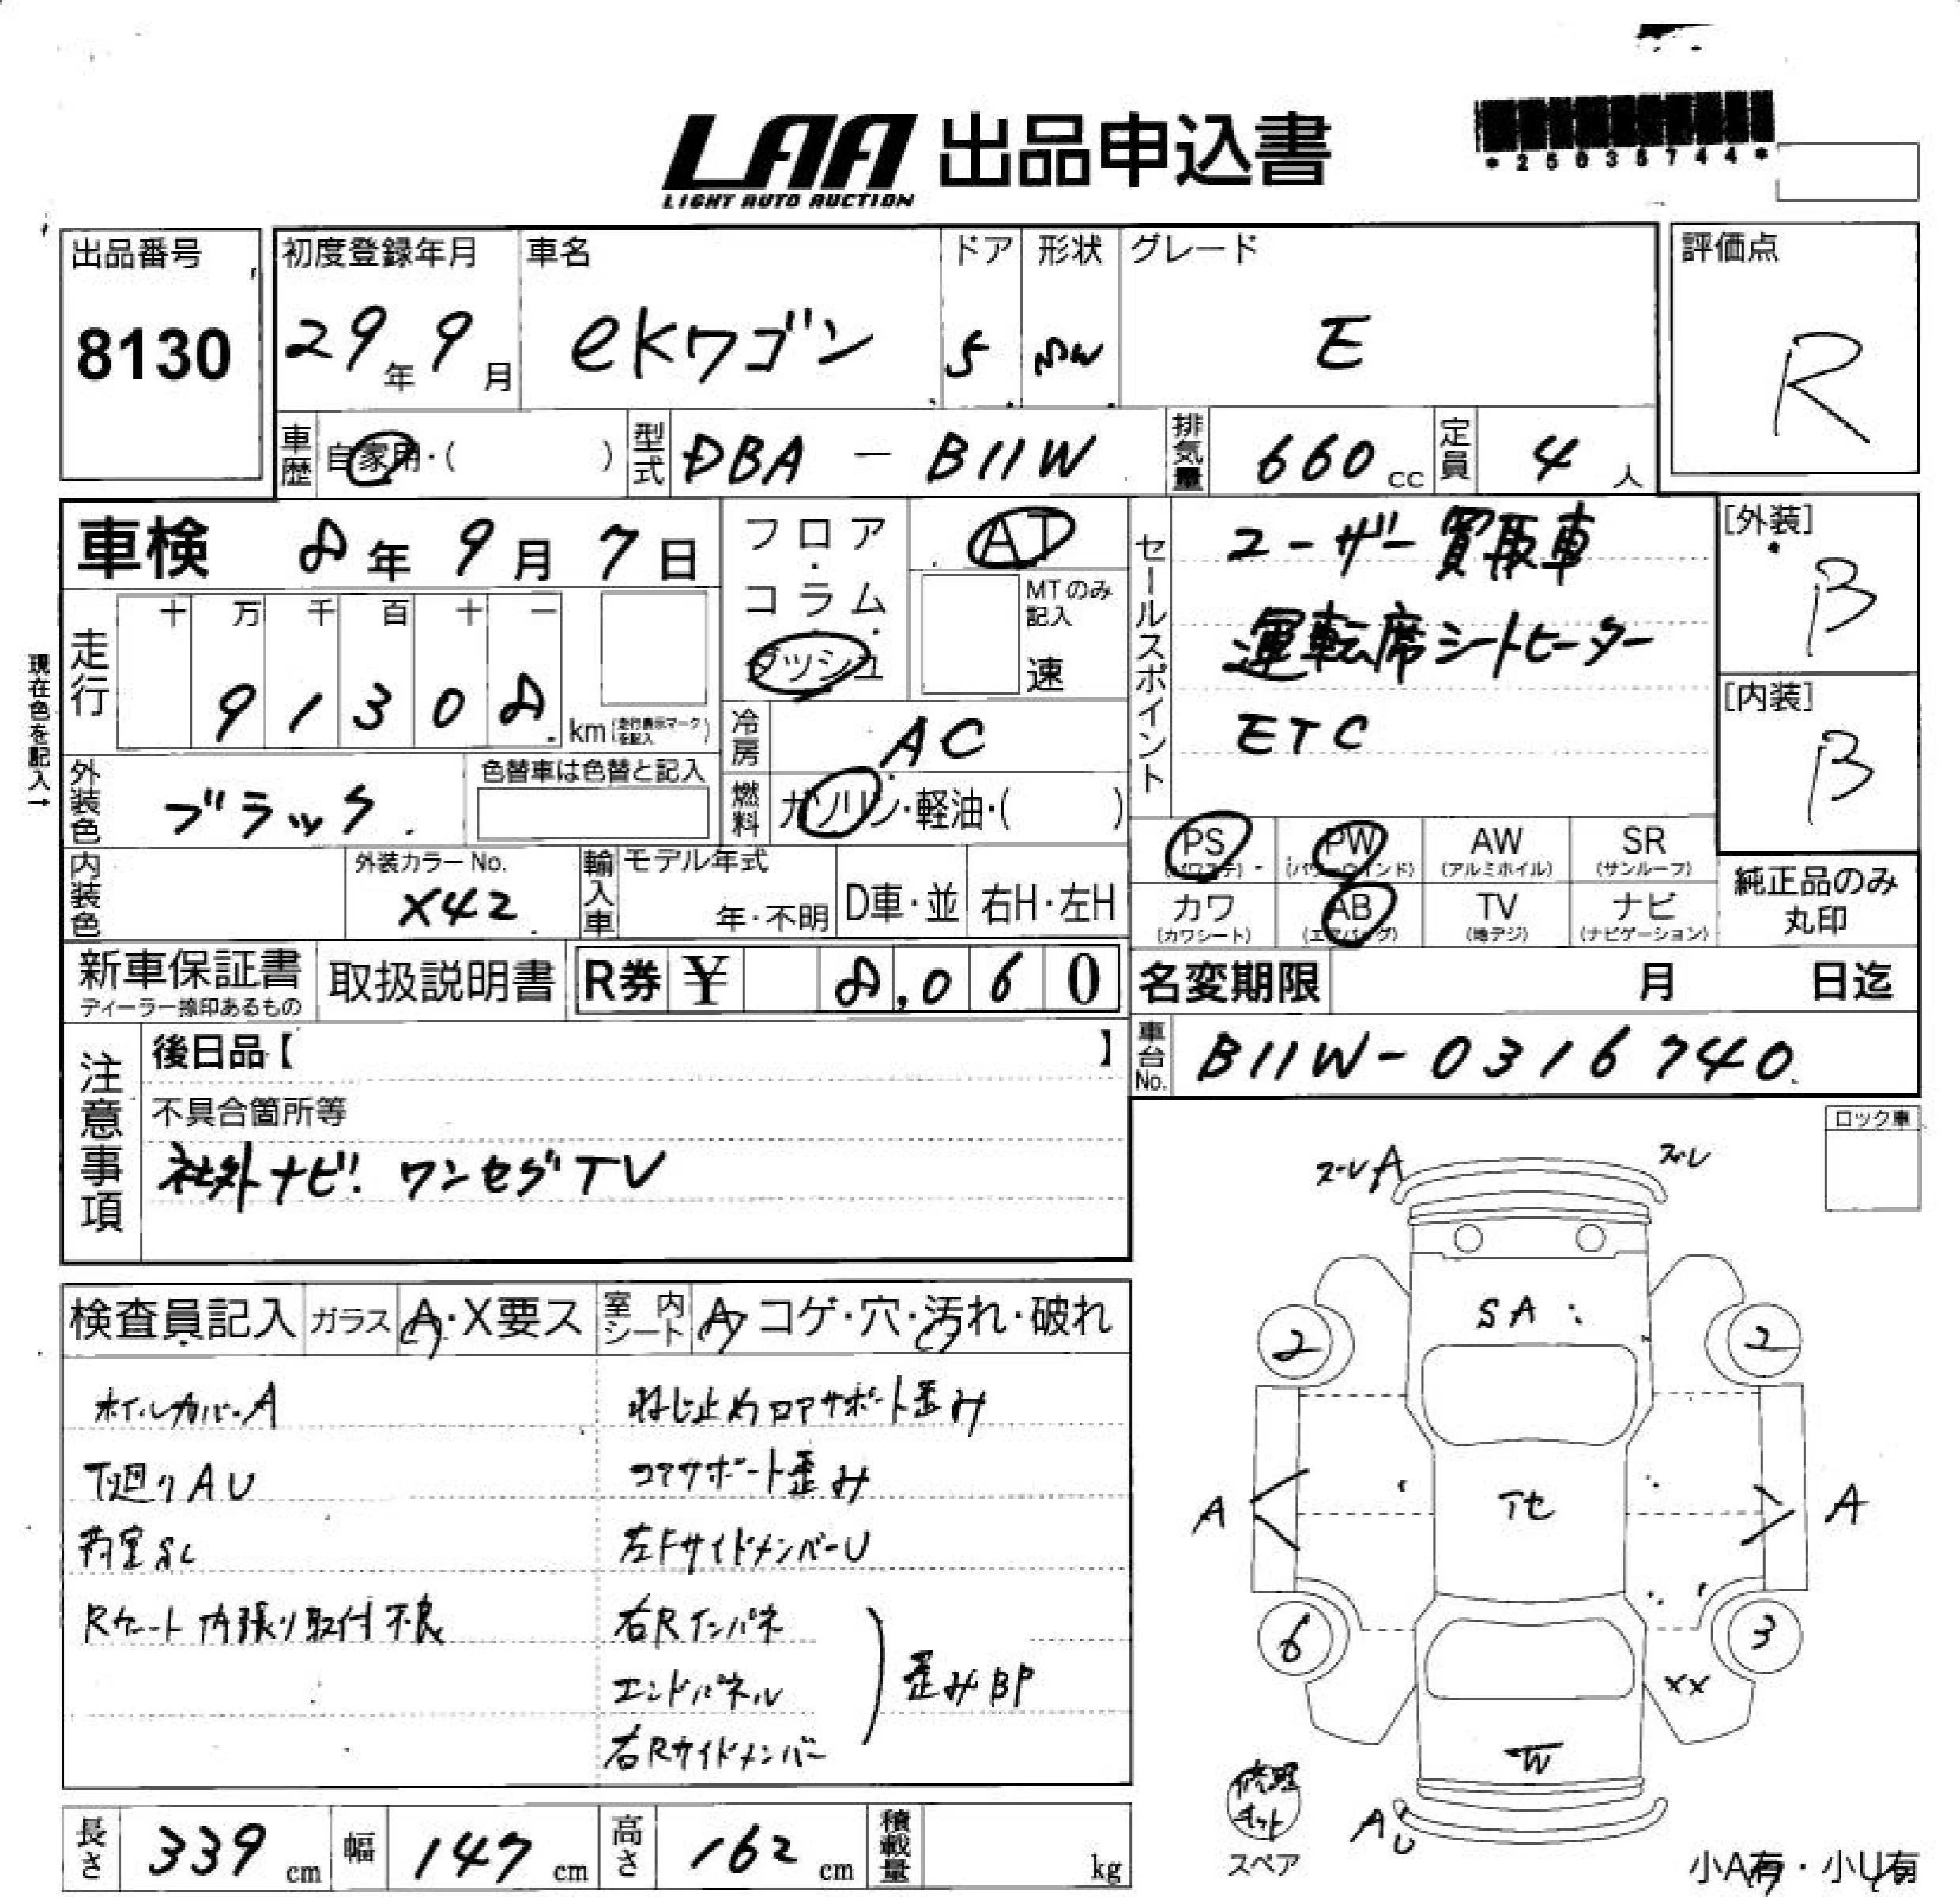 LAA 出品申込書
LIGHT AUTO AUCTION
*25036744*
出品番号
8130
初度登録年月
29年9月
車名
ekワゴン
ドア
5
形状
グレード
E
評価点
R
車歴 自家用・( )
型式 DBA - B11W
排気量 660cc
定員 4人
車検 8年9月7日
現在色を記入→
走行
十 万 千 百 十 一
9 1 3 0 8
km(走行表示マークを記入)
フロア・コラム・ダッシュ
AT
MTのみ記入
速
冷房 AC
燃料 ガソリン・軽油・( )
外装色 ブラック
色替車は色替と記入
内装色
外装カラーNo.
X42
輸入車
モデル年式
年・不明
D車・並
右H・左H
セールスポイント
ユーザー買取車
運転席シートヒーター
ETC
[外装]
B
[内装]
B
PS(パワステ)
PW(パワーウインド)
AW(アルミホイル)
SR(サンルーフ)
カワ(カワシート)
AB(エアバッグ)
TV(地デジ)
ナビ(ナビゲーション)
純正品のみ丸印
新車保証書
ディーラー捺印あるもの
取扱説明書
R券 ¥ 8,060
名変期限 月 日迄
車台No. B11W-0316740
注意事項
後日品【 】
不具合箇所等
社外ナビ! ワンセグTV
ロック車
検査員記入
ガラス A・X要ス
室内シート A コゲ・穴・汚れ・破れ
ホイールカバーA
下廻りAU
荷室SC
Rゲート内張り取付不良
ねじ止めコアサポート歪み
コアサポート歪み
左FサイドメンバーU
右Rインパネ
エンドパネル
右Rサイドメンバー
歪みBP
ズレA
ズレ
SA
2
2
A
A
6
3
XX
W
AU
修理キット
スペア
小A有・小U有
長さ 339cm
幅 147cm
高さ 162cm
積載量 kg